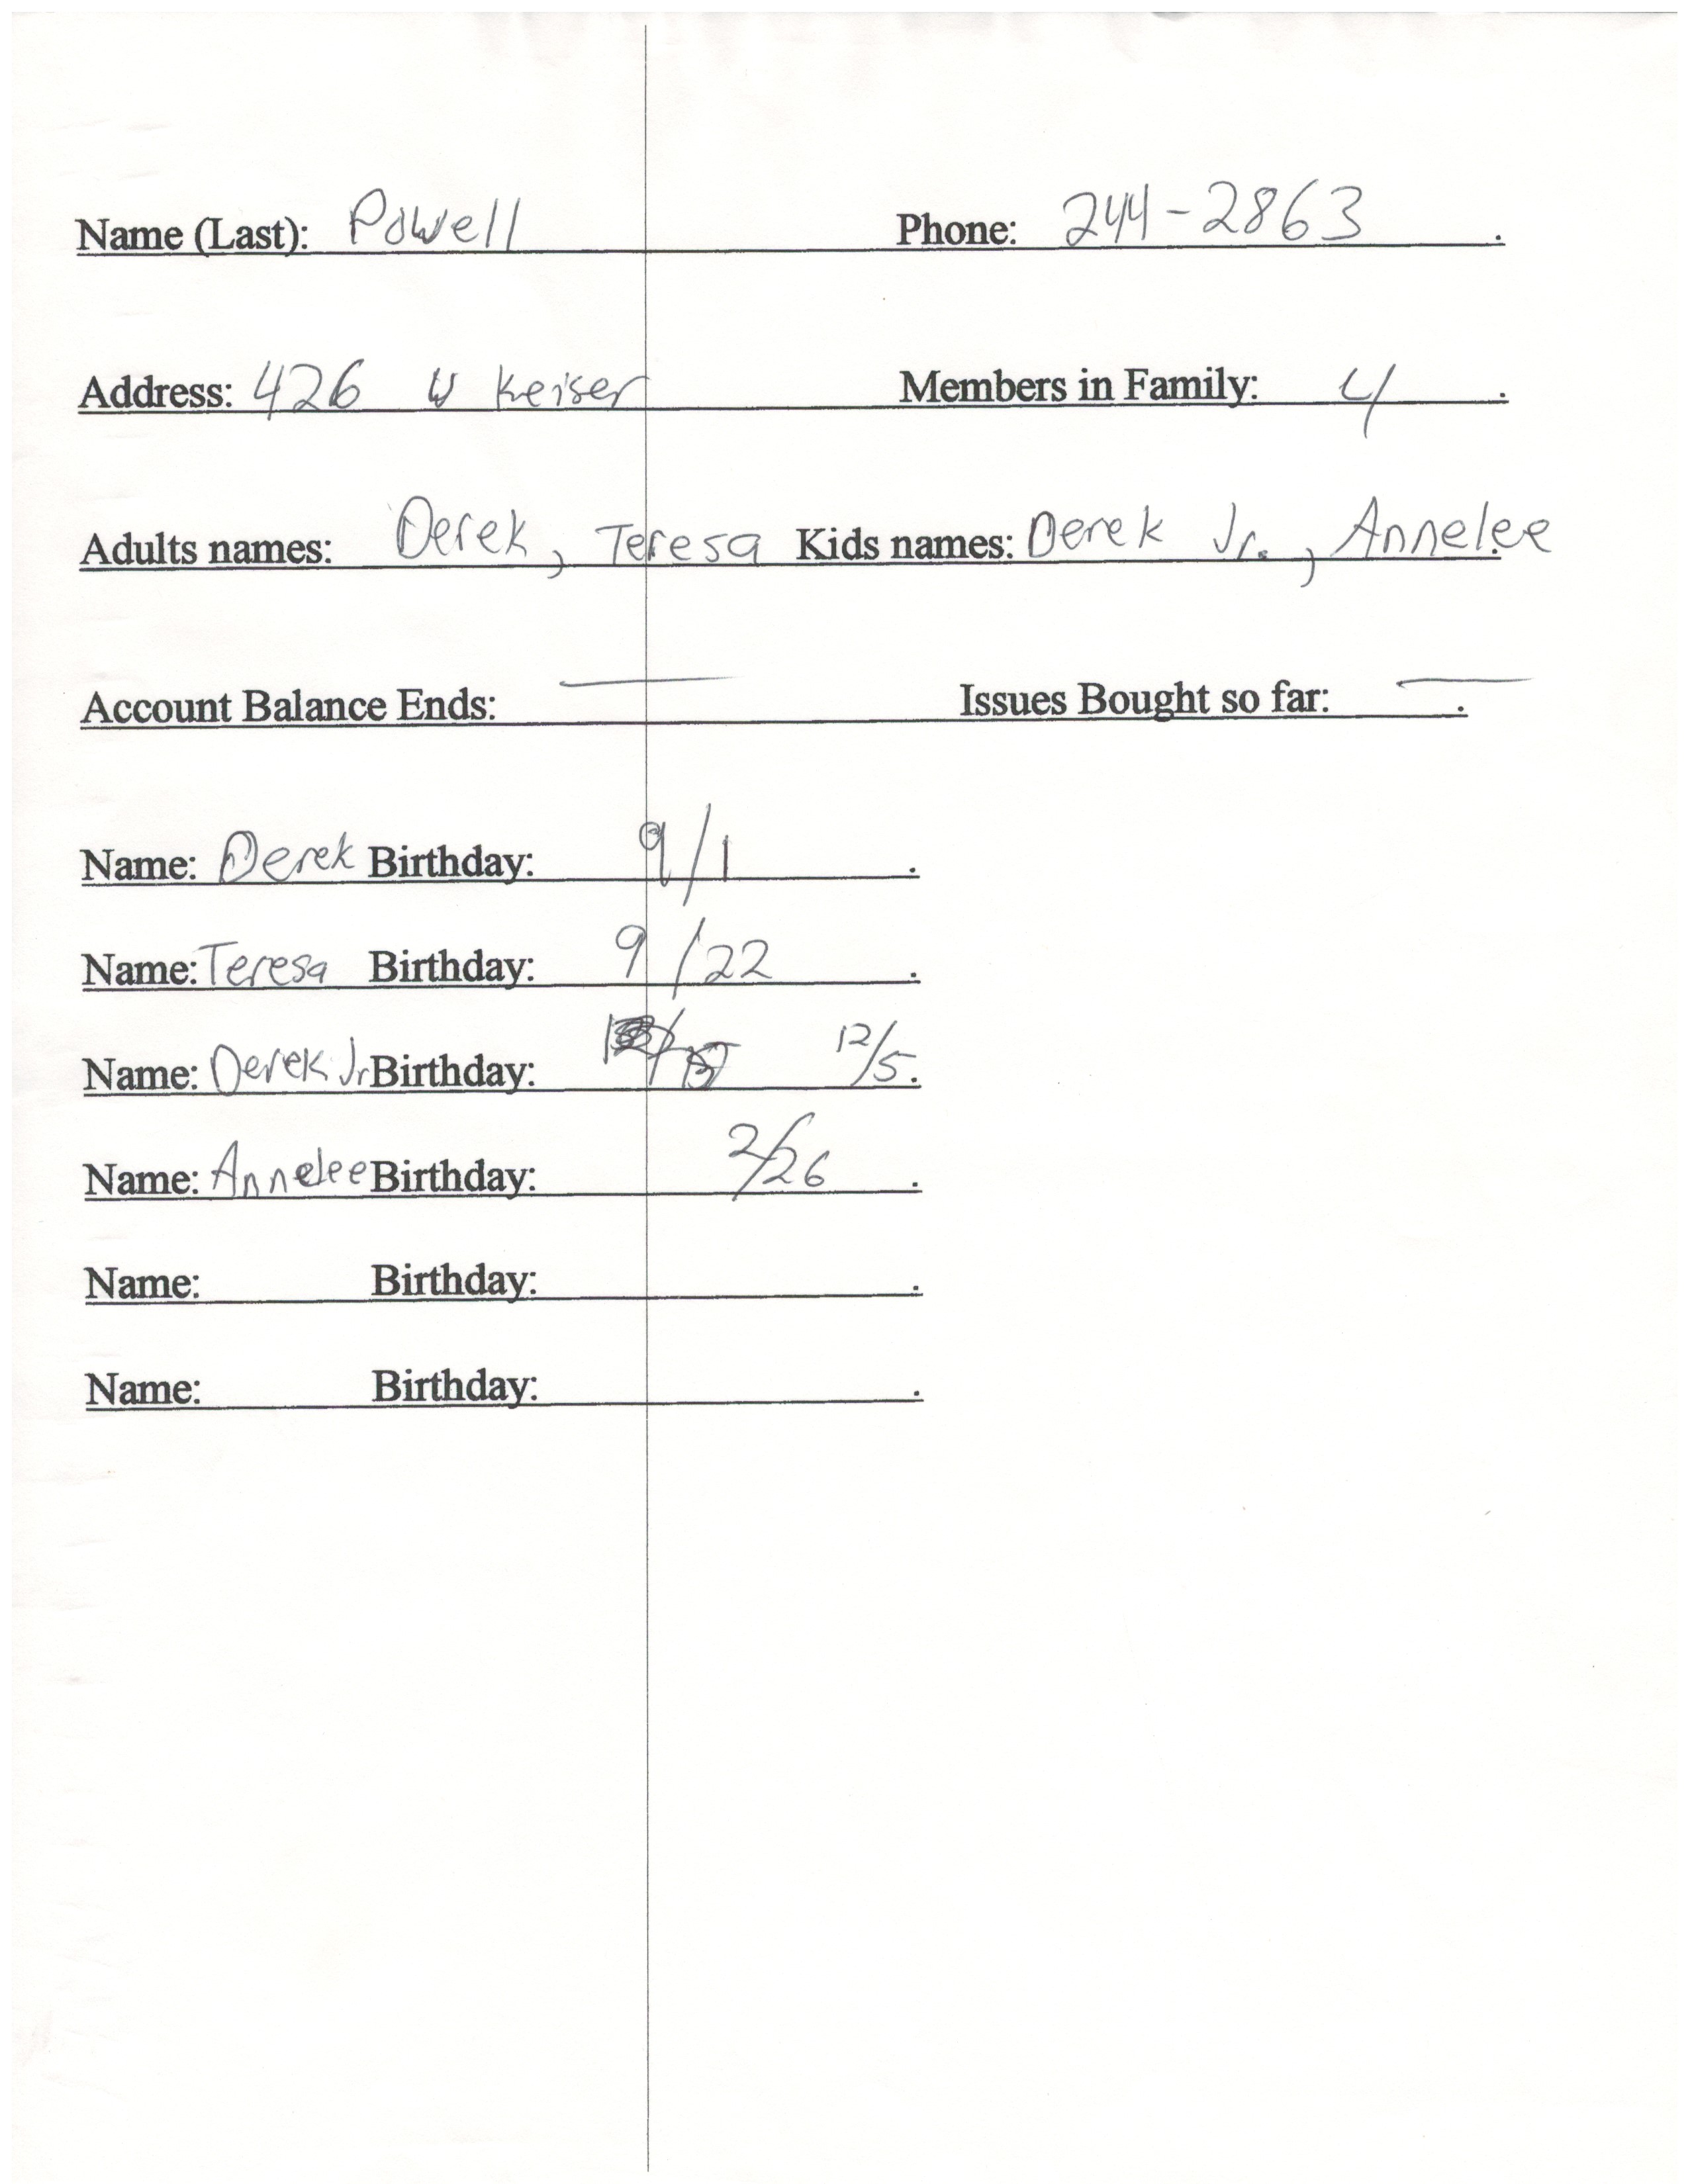 Name (Last): Powell Phone: 244-2863 .
Address: 426 W Keiser Members in Family: 4 .
Adults names: Derek, Teresa Kids names: Derek Jr., Annelee .
Account Balance Ends: — Issues Bought so far: — .
Name: Derek Birthday: 9/1 .
Name: Teresa Birthday: 9/22 .
Name: Derek Jr Birthday: 12/5 .
Name: Annelee Birthday: 2/26 .
Name: Birthday: .
Name: Birthday: .